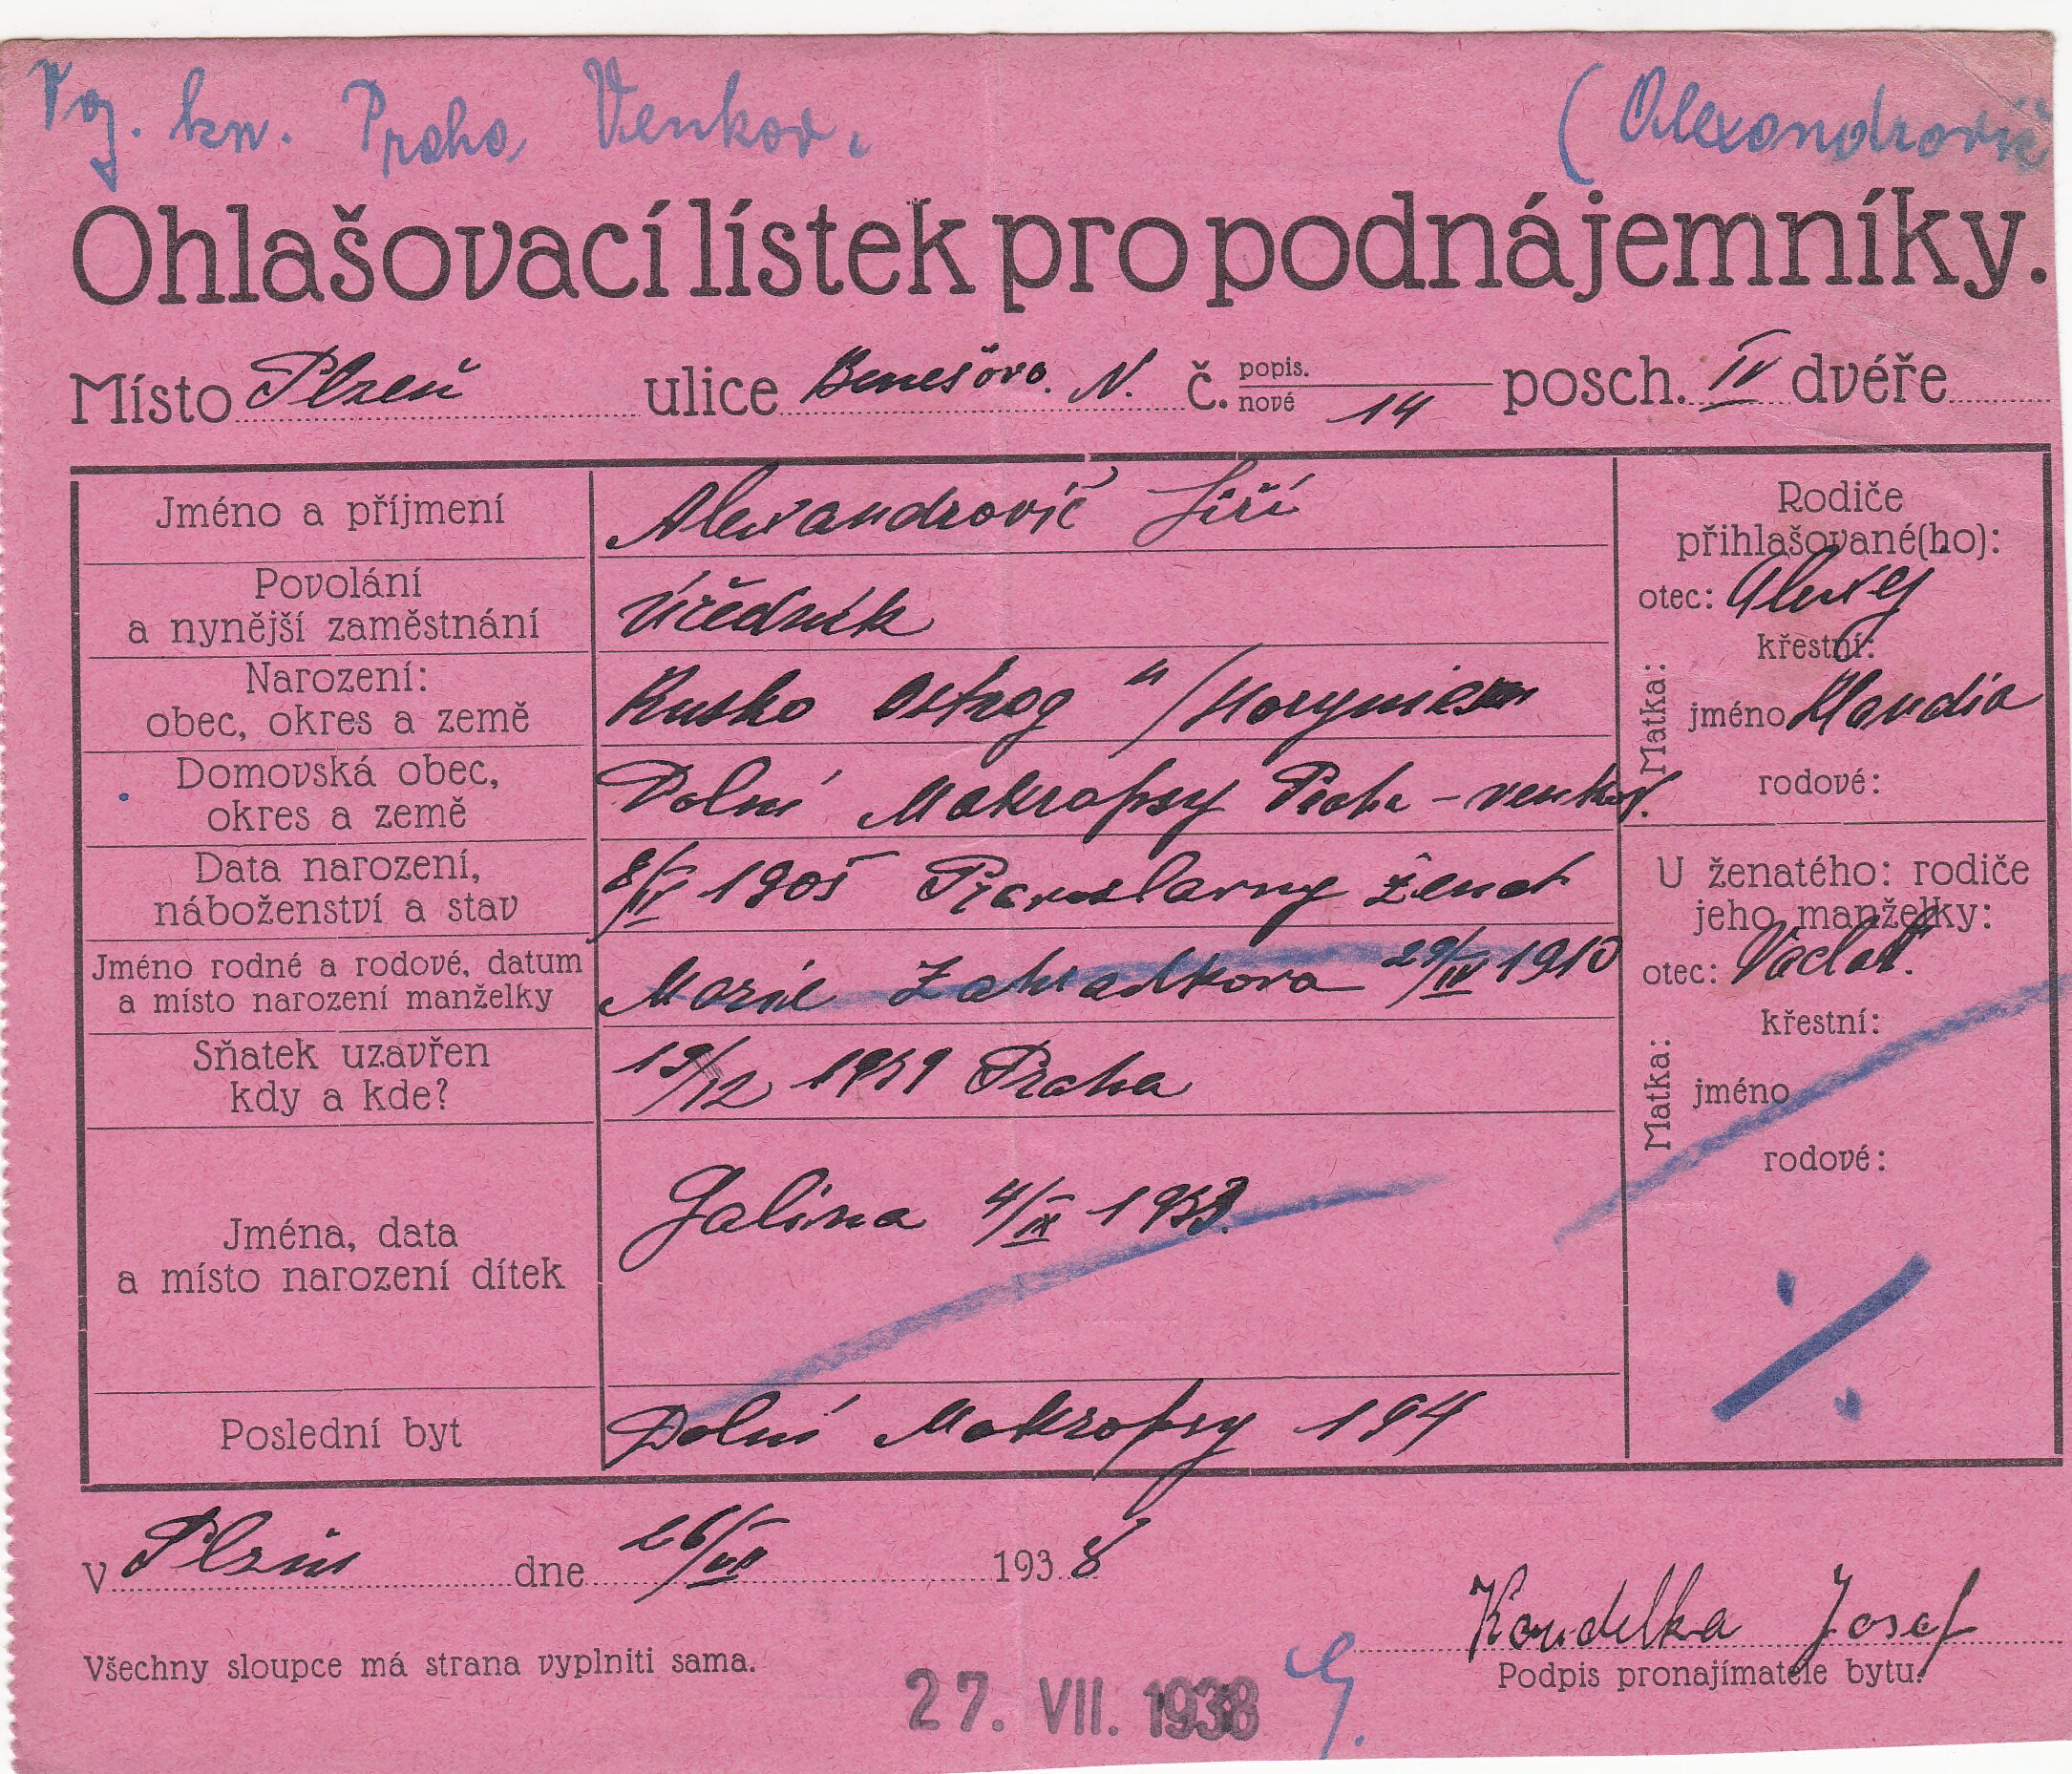 Voj. kn. Praha Venkov. (Alexandrovič
Ohlašovací lístek pro podnájemníky.
Místo Plzeň ulice Benešova N. č. popis. nové 14 posch. IV dvéře
Jméno a příjmení Alexandrovič Jiří
Povolání
a nynější zaměstnání Úředník
Narození:
obec, okres a země Rusko Ostrog
Domovská obec,
okres a země Dolní Mokropsy Praha - venkov.
Data narození,
náboženství a stav 8/IV 1905 Pravoslavny ženat
Jméno rodné a rodové, datum
a místo narození manželky Marie Zahradkova 29/IV 1910
Sňatek uzavřen
kdy a kde? 19/12 1931 Praha
Jména, data
a místo narození dítek Galina 4/IX 1933.
Poslední byt Dolní Mokropsy 194
Rodiče
přihlašované(ho):
otec: Alexej
Matka:
křestní:
jméno Klaudia
rodové:
U ženatého: rodiče
jeho manželky:
otec: Václav.
Matka:
křestní:
jméno
rodové:
v Plzni dne 26/VII 1938
Koudelka Josef
Všechny sloupce má strana vyplniti sama.
Podpis pronajímatele bytu.
27. VII. 1938